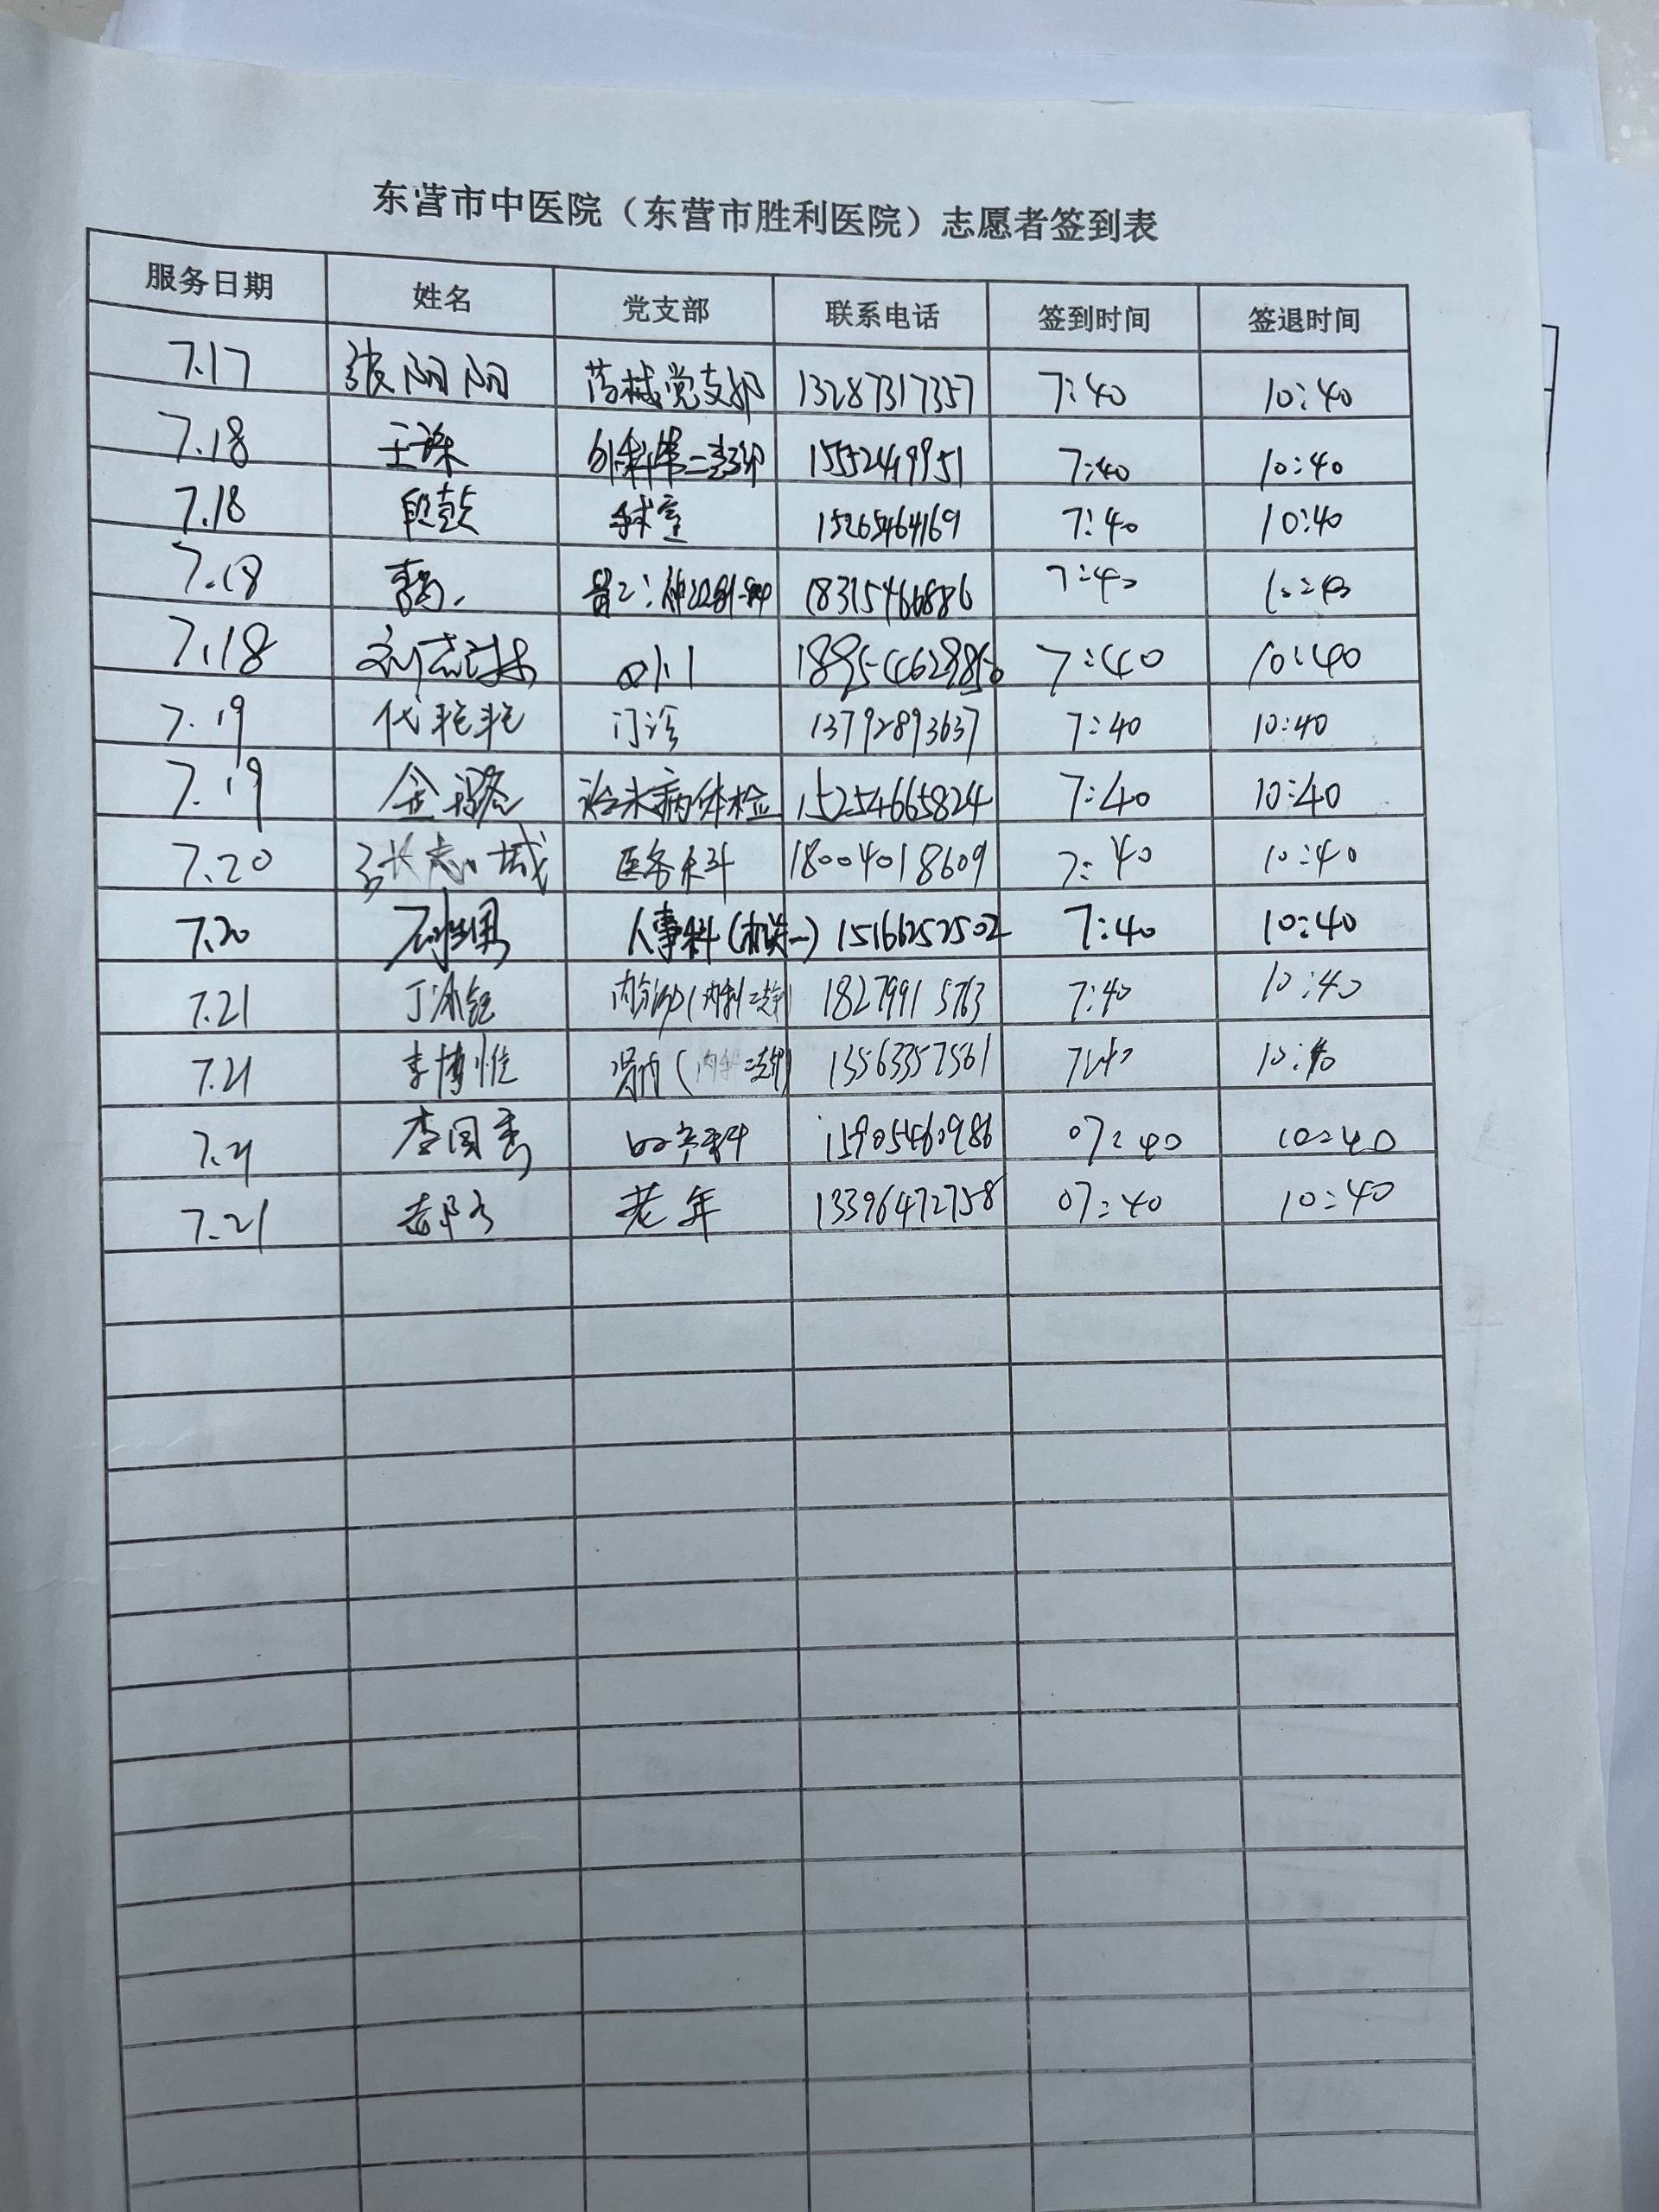 东营市中医院（东营市胜利医院）志愿者签到表
服务日期 姓名 党支部 联系电话 签到时间 签退时间
7.17 张阳阳 药械党支部 13287317357 7:40 10:40
7.18 王 外科第二支部 15552449951 7:40 10:40
7.18 段 手术室 15265464169 7:40 10:40
7.18 18315466886 7:40 10:40
7.18 刘志 7:40 10:40
7.19 代艳艳 门诊 13792893637 7:40 10:40
7.19 金璐 治未病体检 15254665824 7:40 10:40
7.20 张志城 医务科 18004018609 7:40 10:40
7.20 人事科(机关一) 15166252502 7:40 10:40
7.21 丁 内分泌(内科二支部) 18279915763 7:40 10:40
7.21 李博 (内科二支部) 13563357561 7:40 10:40
7.21 李国秀 15905460986 07:40 10:40
7.21 老年 13396472758 07:40 10:40